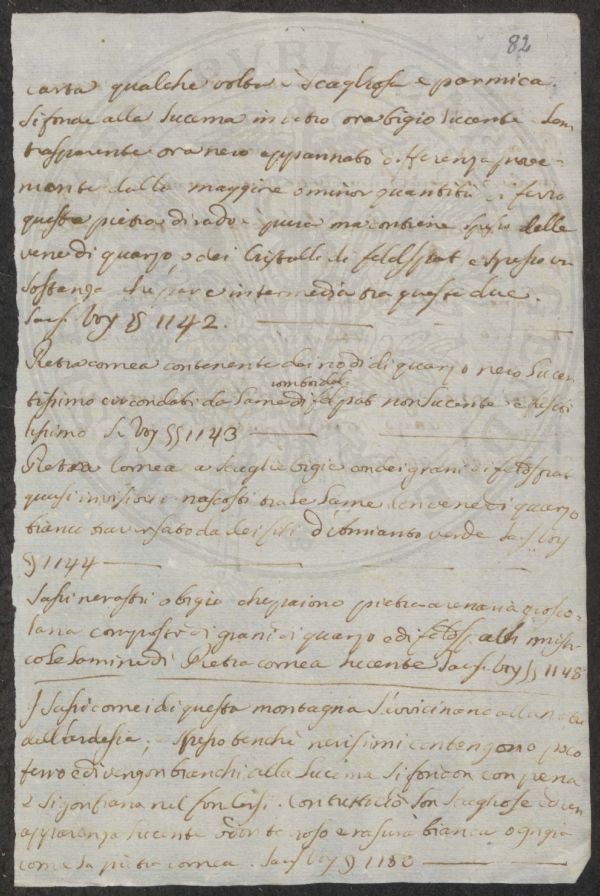 82
carta qualche volta è scagliosa e parmica.
Si fonde alla lucerna in vetro ora bigio lucente Sem
trasparente ora nero appannato differenza prove-
niente dalla maggiore o minor quantità di ferro
questa pietra di rado è pura ma contiene spesso delle
vene di quarzo, o dei Cristalli di feldspat e spesso un
sostanza che pare intermedia tra queste due.
Saus. Voy § 1142.
Pietra cornea contenente dei nodi di quarzo nero lucen
romboidal
tissimo circondati da lame di felspat non lucente
lissimo S. Voy §§ 1143
Pietra Cornea a scaglie bigie con dei grani di feldspat
quasi invisibili nascosti tra le lame con vene di quarzo
bianco traversato da dei fili d'Amianto verde Saus. Voy
§ 1144
Sassi nerastri o bigio che paiono pietra arenaria grosso-
lana composto di grani di quarzo o di feldsp. alli misti
co le lamine di Pietra cornea lucente Saus. Voy §§ 1148
I Sassi cornei di questa montagna s'avvicinano alla natu
dell'ardesia; spesso benchè nerissimi contengono poco
ferro e divengon bianchi alla lucerna si fondon con pena
e si gonfiano nel fondersi. Con tuttociò son scagliose ed in
apparenza lucente odor terroso e rasura bianca o grigia
come la pietra cornea. Saus. Voy §